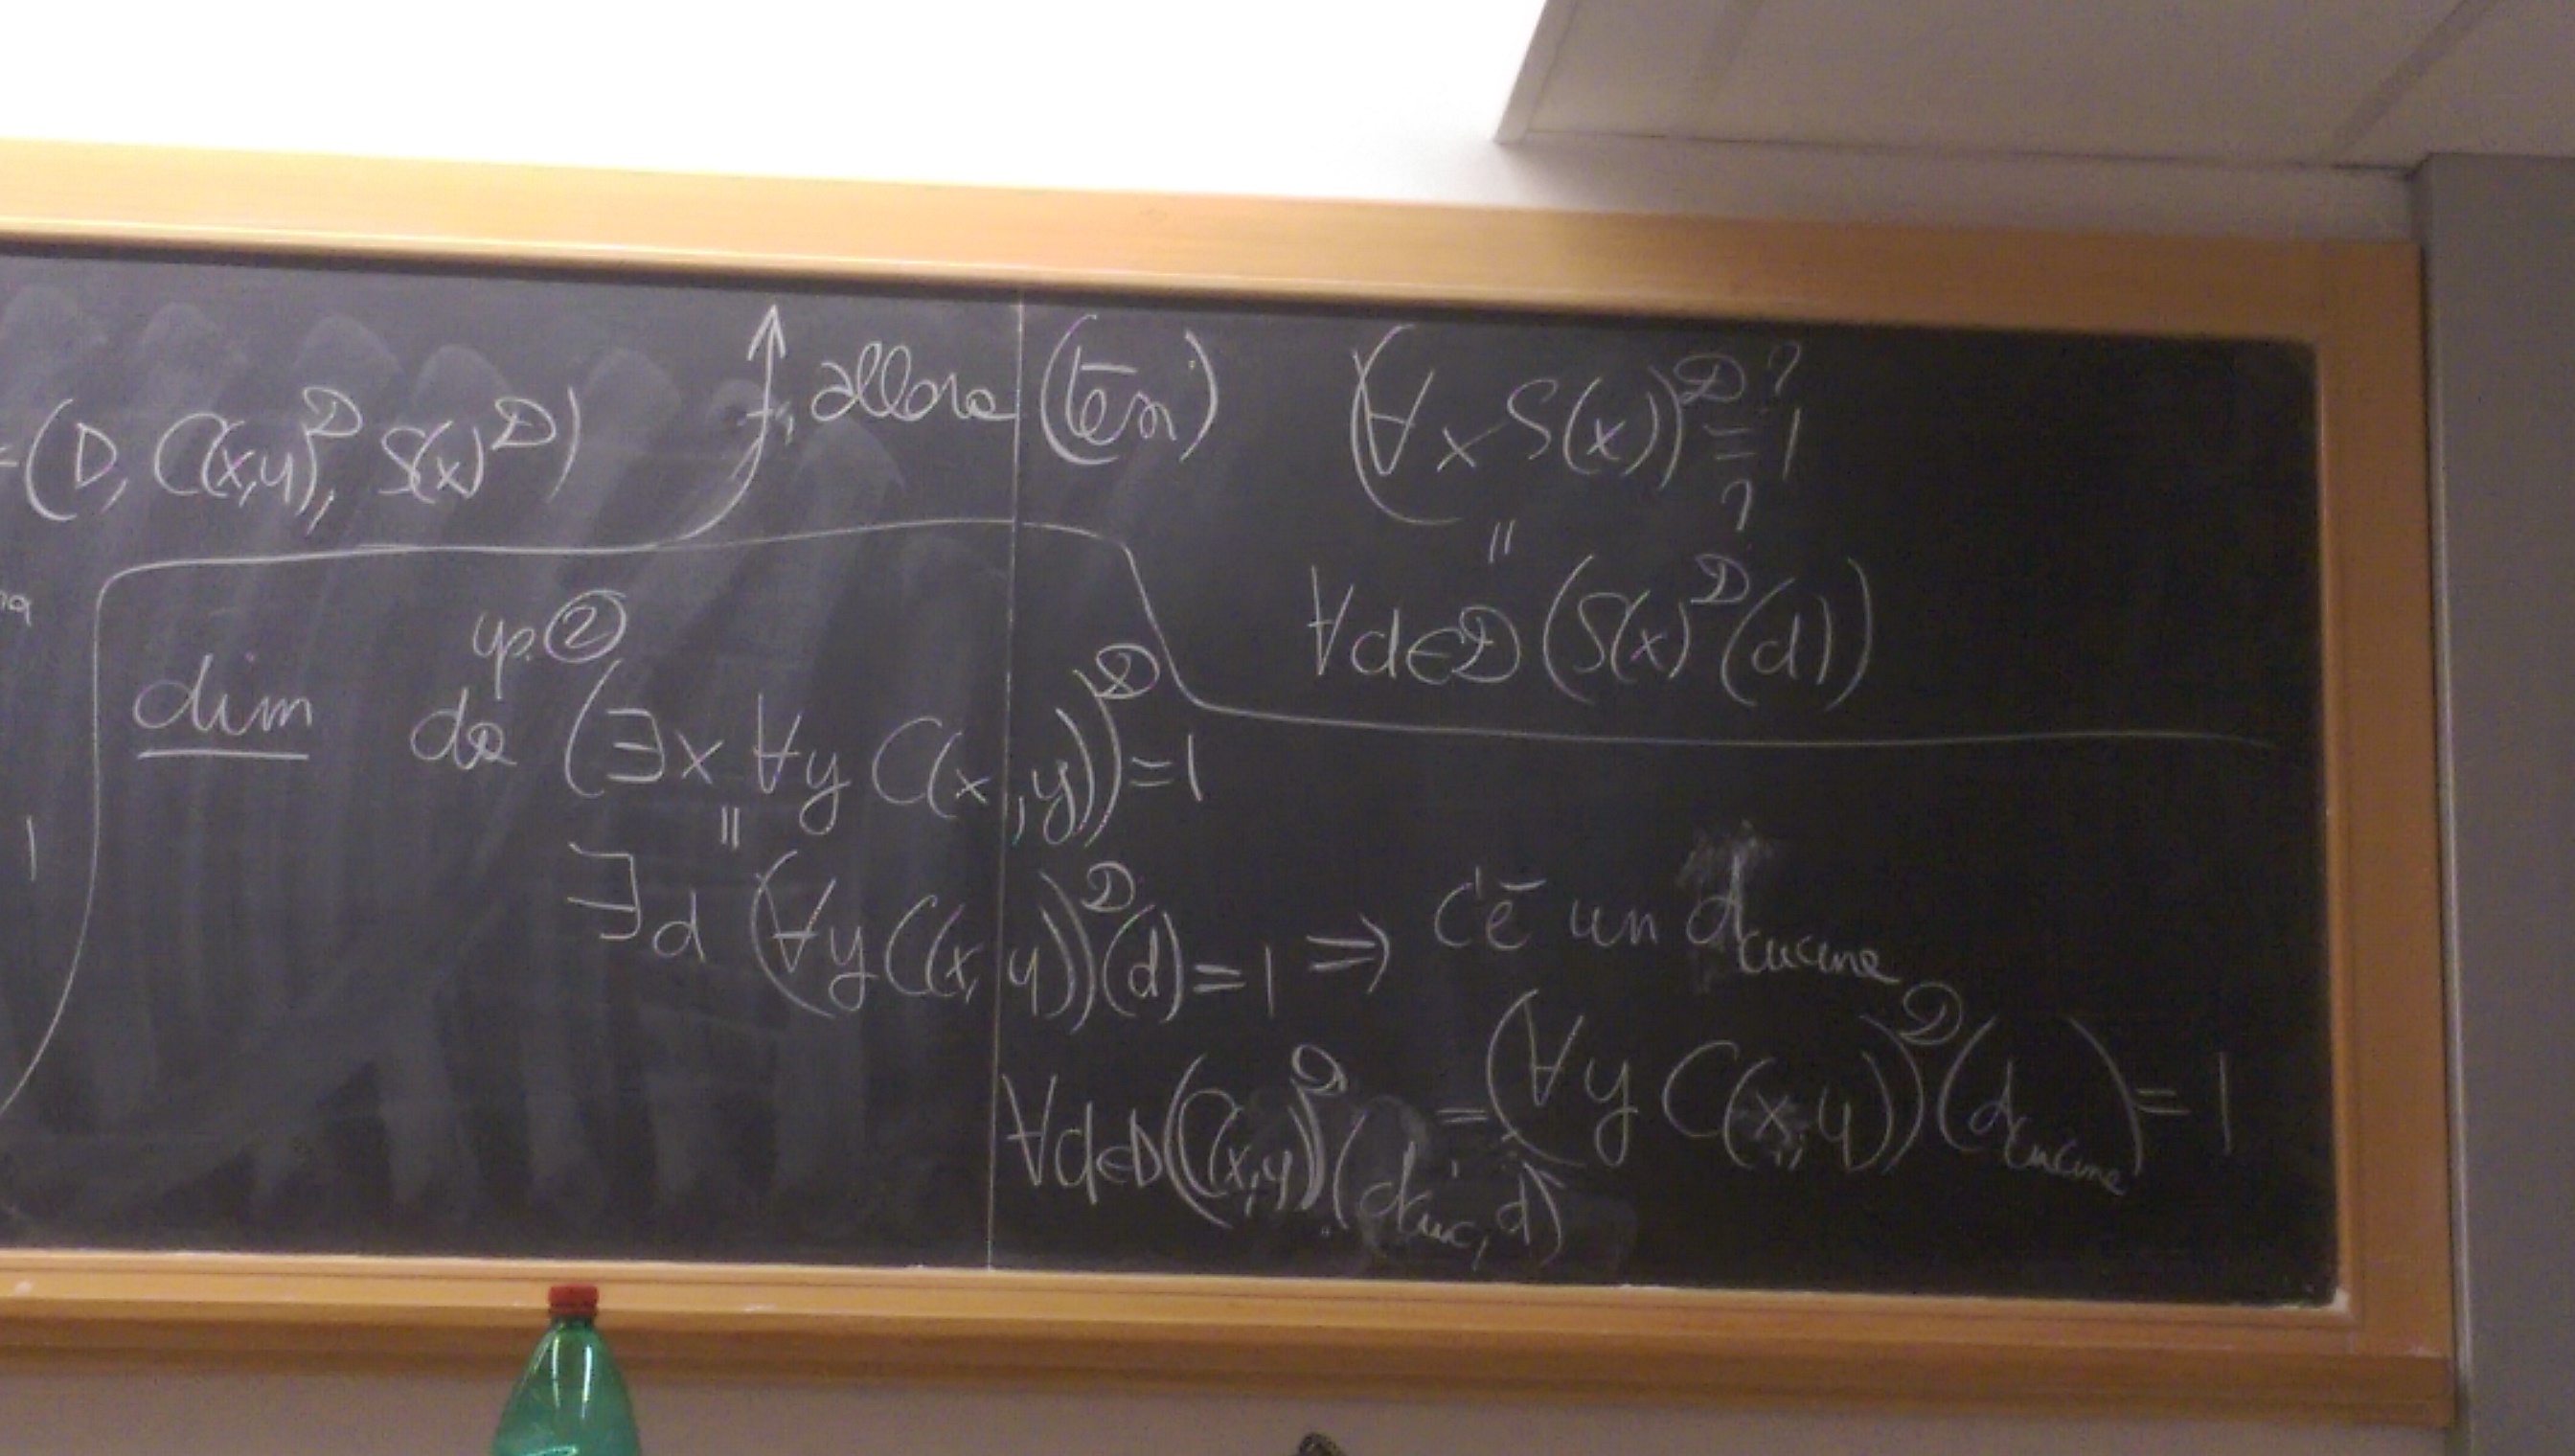 =(D, C(x,y)^𝒟, S(x)^𝒟)
allora (tesi) (∀x S(x))^𝒟 ?= 1
?
||
∀d∈𝒟 (S(x)^𝒟(d))
ip. ②
dim da (∃x ∀y C(x,y))^𝒟 = 1
||
∃d (∀y C(x,y))^𝒟(d) = 1 ⇒ c'è un d_cucina
∀d∈D (C(x,y)^𝒟 (d_cuc, d) = (∀y C(x,y))^𝒟 (d_cucina) = 1
1